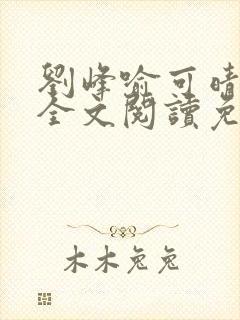 劉峰喻可晴
全文閱讀免
木木兔兔